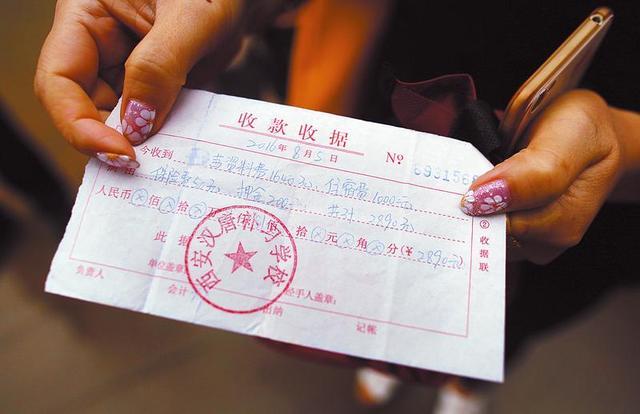 收款收据
2016年8月5日
Nº 6931568
今收到 资料费1640元,住宿费1000元
保险费50元 押金200元 共计2890元
人民币 佰 拾 万 仟 佰 拾 元 角 分(¥2890元)
此据
西安汉唐补习学校
单位盖章
经手人盖章:
负责人 会计 出纳 记帐
②收据联